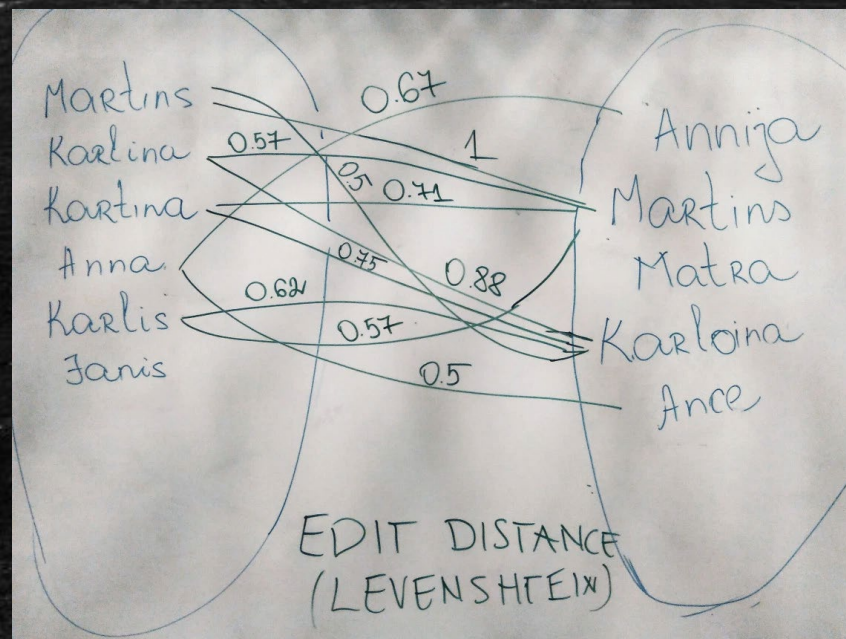 Martins
Karlina
Kartina
Anna
Karlis
Janis
0.67
0.57
1
0.5
0.71
0.75
0.88
0.62
0.57
0.5
Annija
Martins
Matra
Karloina
Ance
EDIT DISTANCE
(LEVENSHTEIN)